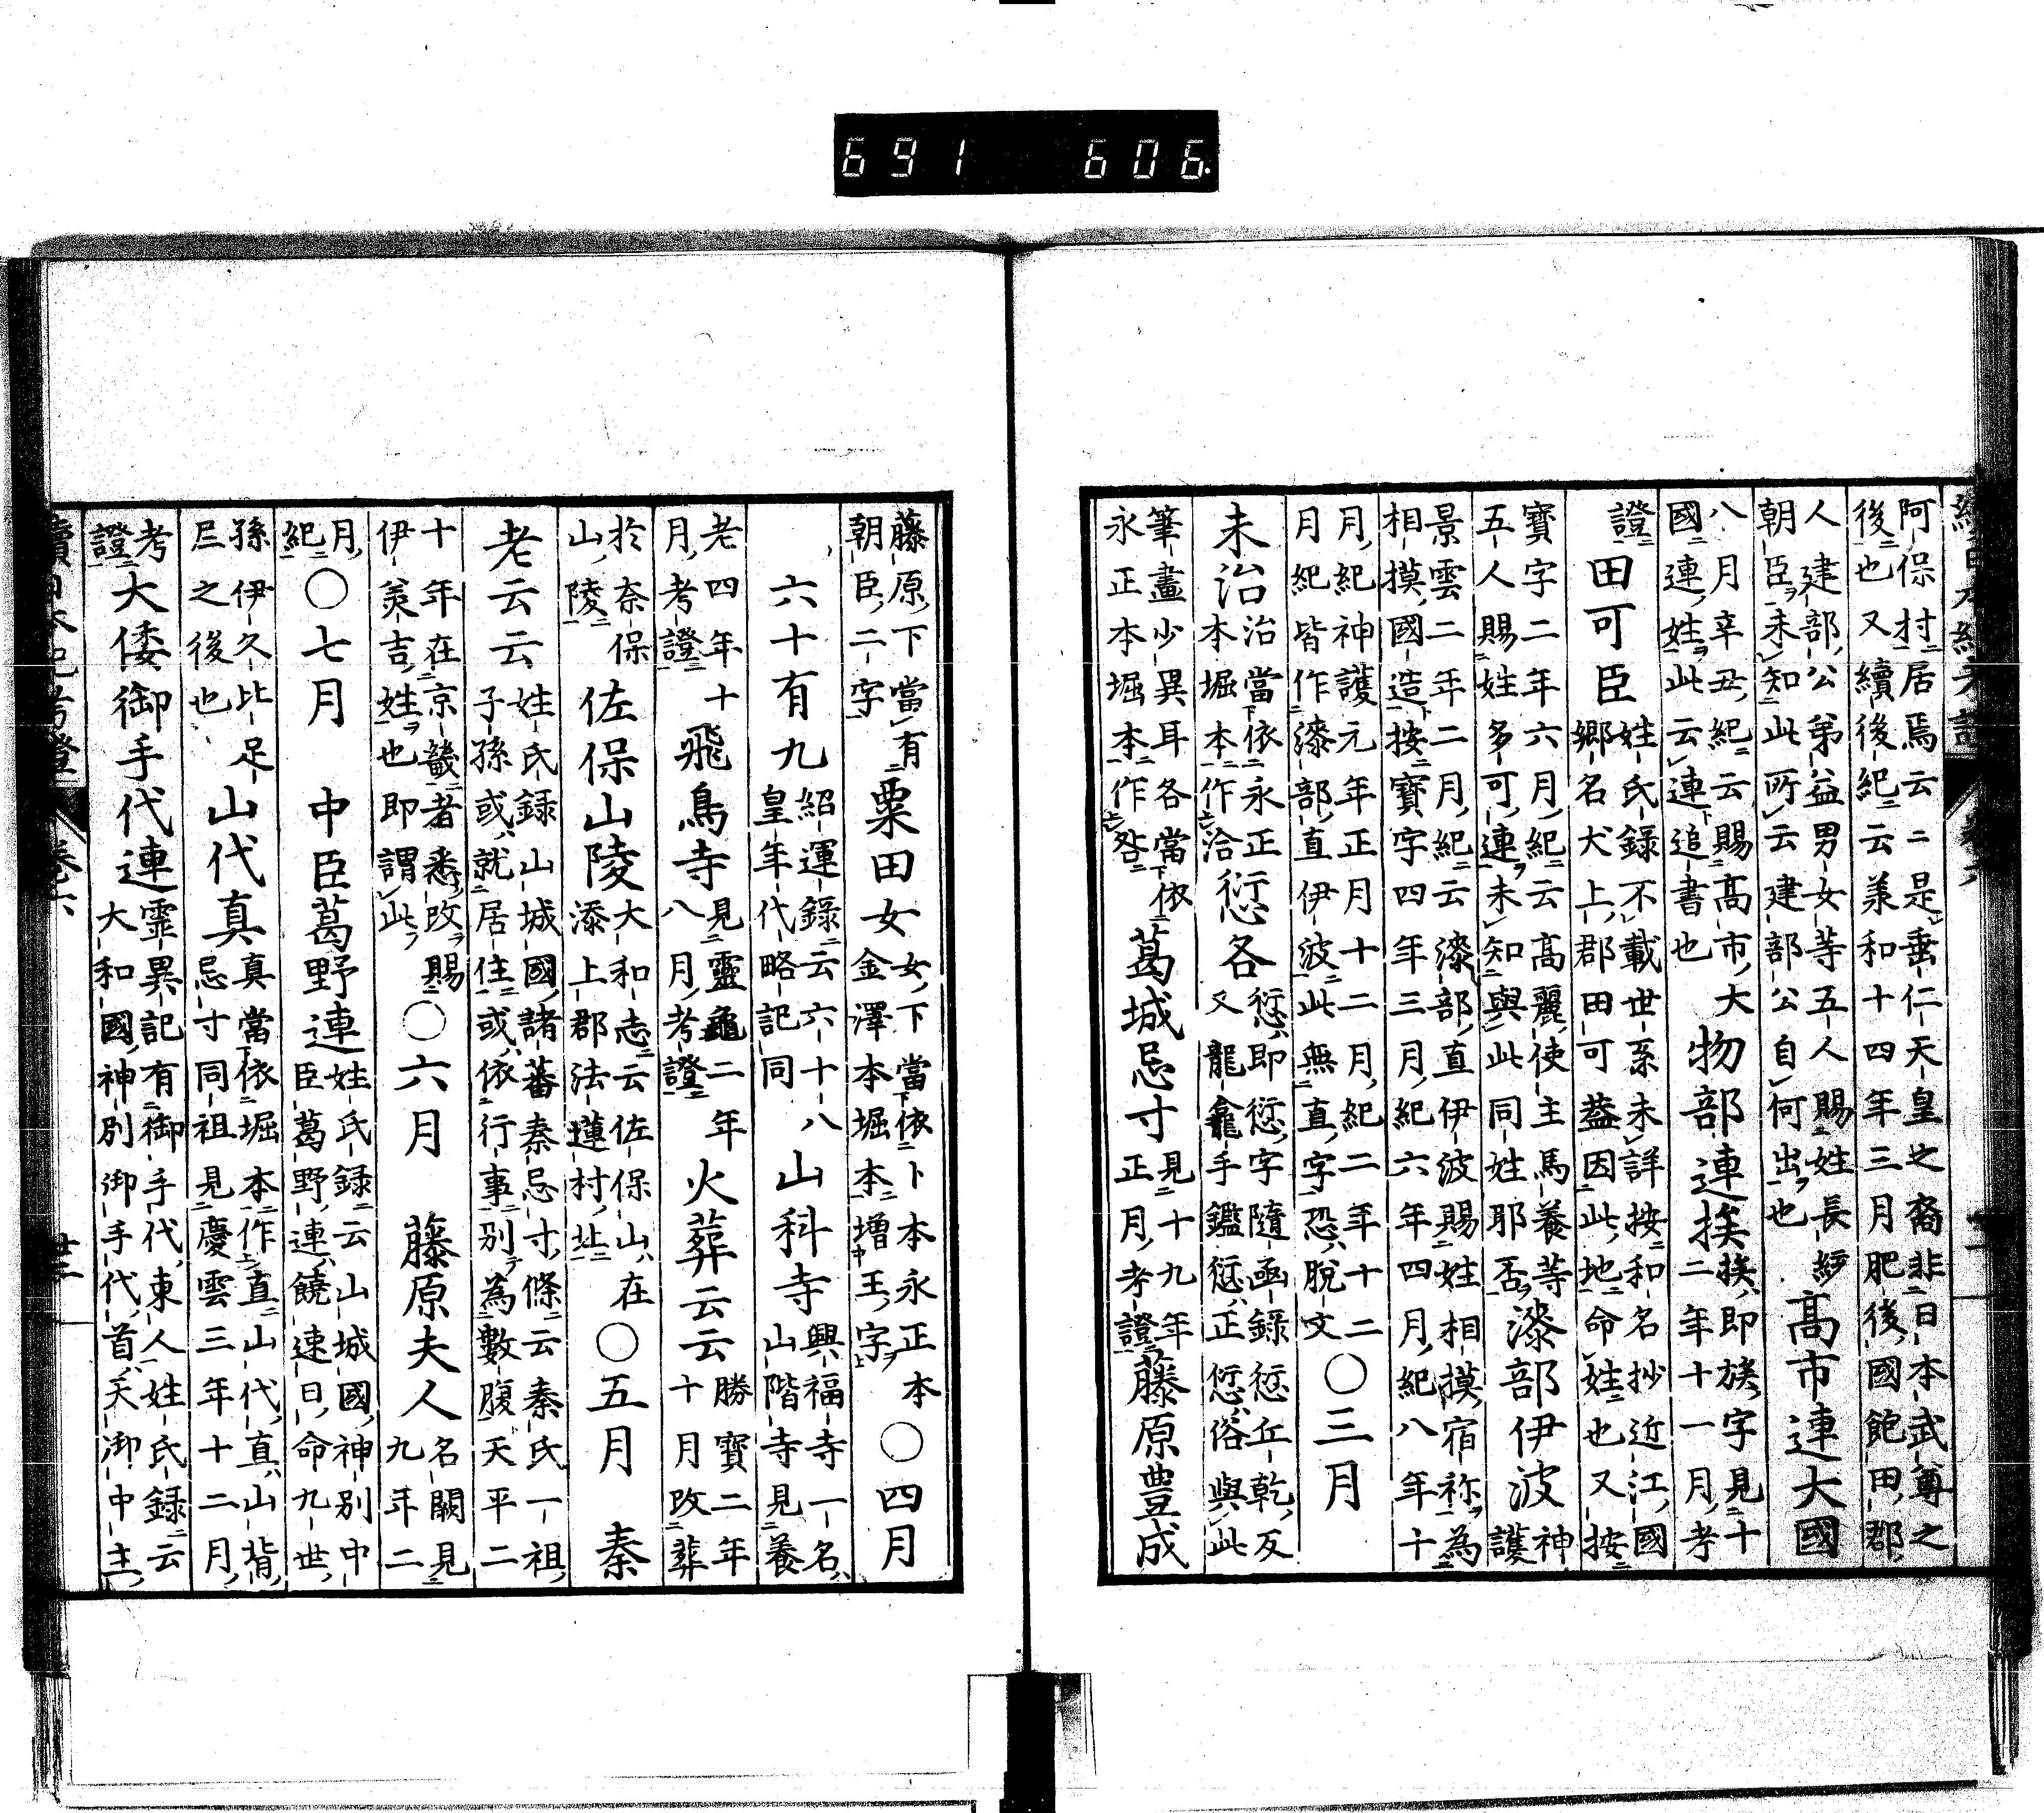 阿保村居焉云二是垂仁天皇之裔非日本武尊之
後也又續後紀云承和十四年三月肥後國飽田郡
人建部公弟益男女等五人賜姓長
朝臣未知此所云建部公自何出也
高市連大國
八月辛丑紀云賜高市大
國連姓此云連追書也
物部連挨
挨即族字見十
二年十一月考
證
田可臣
姓氏録不載世系未詳按和名抄近江國
郷名犬上郡田可盖因此地命姓也又按
寶字二年六月紀云高麗使主馬養等
五人賜姓多可連未知與此同姓耶否
漆部伊波
神
護
景雲二年二月紀云漆部直伊波賜姓相摸宿祢為
相摸國造按寶字四年三月紀六年四月紀八年十
月紀神護元年正月十二月紀二年十二
月紀皆作漆部直伊波此無直字恐脫文
〇三月
未治
治當依永正
本堀本作洽
愆各
愆即愆字隨函録愆丘乾反
又龍龕手鑑愆正愆俗與此
筆畫少異耳各當依
永正本堀本作咎
葛城忌寸
見十九年
正月考證
藤原豊成
藤原下當有
朝臣二字
粟田女
女下當依卜本永正本
金澤本堀本增王字
〇四月
六十有九
紹運錄云六十八
皇年代略記同
山科寺
興福寺一名
山階寺見養
老四年十
月考證
飛鳥寺
見靈龜二年
八月考證
火葬云云
勝寶二年
十月改葬
於奈保
山陵
佐保山陵
大和志云佐保山在
添上郡法蓮村北
〇五月 秦
老云云
姓氏録山城國諸蕃秦忌寸條云秦氏一祖
子孫或就居住或依行事別為數腹天平二
十年在京畿者悉改賜
伊美吉姓也即謂此
〇六月 藤原夫人
名闕見
九年二
月
紀
〇七月 中臣葛野連
姓氏録云山城國神別中
臣葛野連饒速日命九世
孫伊久比足
尼之後也
山代真
真當依堀本作直山代直山背
忌寸同祖見慶雲三年十二月
考
證
大倭御手代連
霊異記有御手代東人姓氏録云
大和國神別御手代首天御中主
續日本紀考證 卷六 廿三
691 606